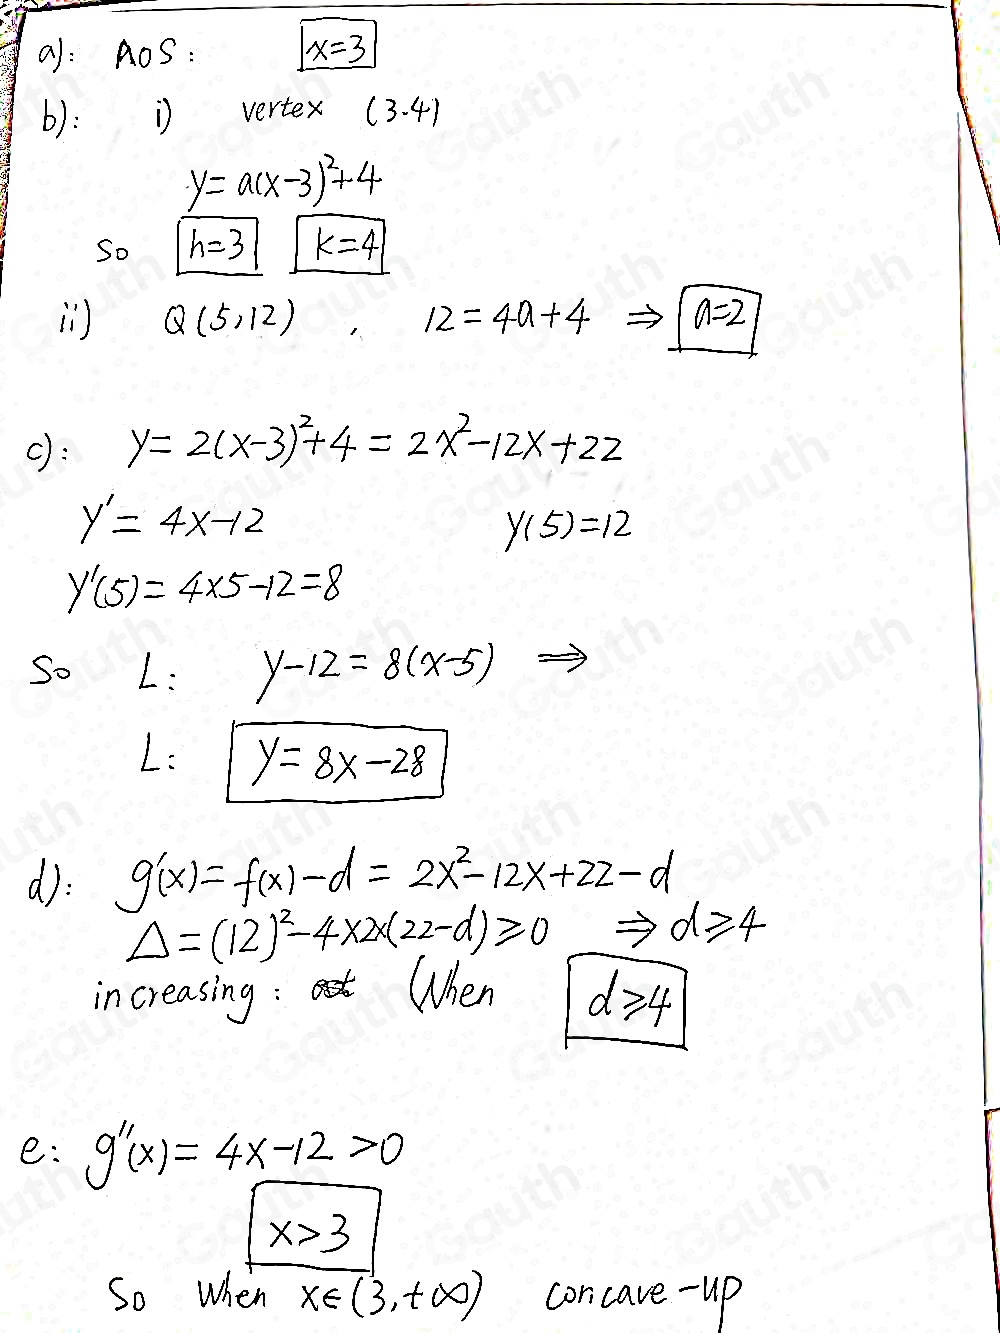 a): AOS: x=3
b): i) vertex (3.4)
y=a(x-3)²+4
so h=3 k=4
ii) Q(5,12), 12=4a+4 ⇒ a=2
c): y=2(x-3)²+4=2x²-12x+22
y'=4x-12 y(5)=12
y'(5)=4×5-12=8
So L: y-12=8(x-5) ⇒
L: y=8x-28
d): g'(x)=f(x)-d=2x²-12x+22-d
Δ=(12)²-4×2×(22-d)≥0 ⇒ d≥4
increasing: (When d≥4
e: g''(x)=4x-12>0
x>3
So when x∈(3,+∞) concave-up